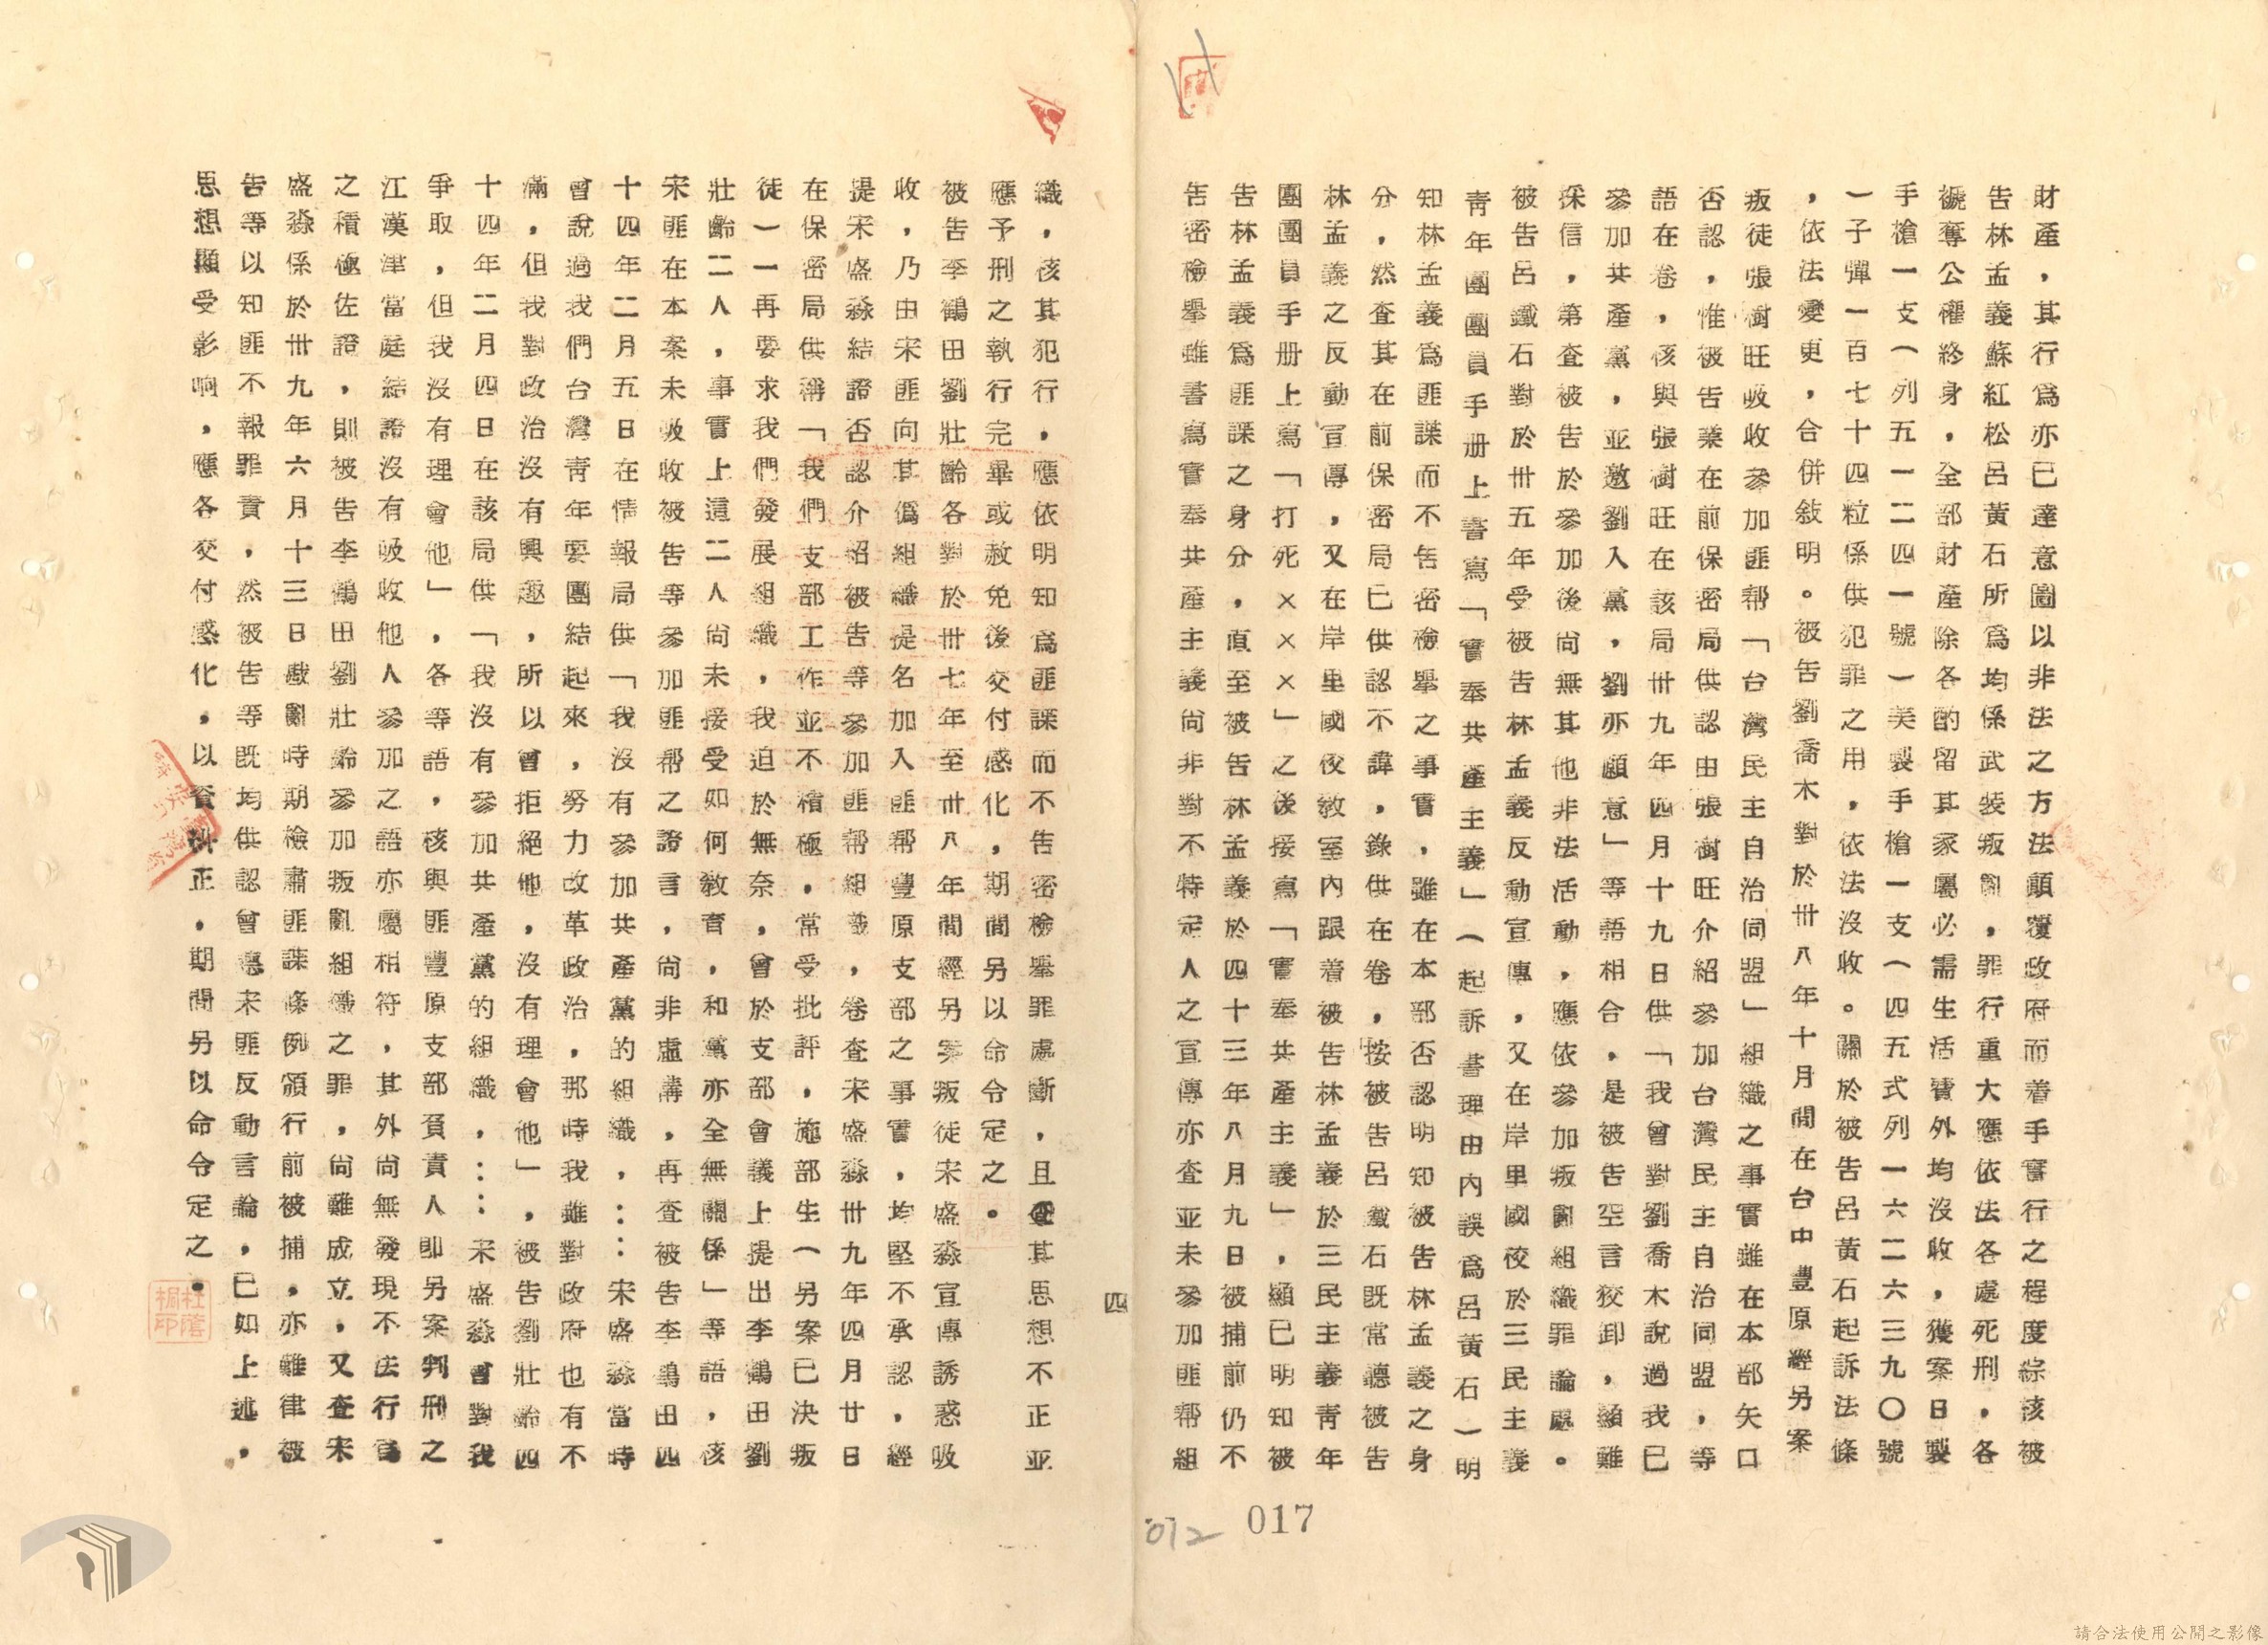 財產，其行爲亦已達意圖以非法之方法顛覆政府而着手實行之程度綜核被
告林孟義蘇紅松呂黃石所爲均係武裝叛亂，罪行重大應依法各處死刑，各
褫奪公權終身，全部財產除各酌留其家屬必需生活費外均沒收，獲案日製
手槍一支（列五一二四一號）美製手槍一支（四五式列一六二六三九〇號
一子彈一百七十四粒係供犯罪之用，依法沒收。關於被告呂黃石起訴法條
，依法變更，合併敍明。被告劉喬木對於卅八年十月間在台中豐原經另案
叛徒張樹旺吸收參加匪帮「台灣民主自治同盟」組織之事實雖在本部矢口
否認，惟被告業在前保密局供認由張樹旺介紹參加台灣民主自治同盟，等
語在卷，核與張樹旺在該局卅九年四月十九日供「我曾對劉喬木說過我已
參加共產黨，並邀劉入黨，劉亦願意」等語相合，是被告空言狡卸，顯難
採信，第查被告於參加後尚無其他非法活動，應依參加叛亂組織罪論處。
被告呂鐵石對於卅五年受被告林孟義反動宣傳，又在岸里國校於三民主義
靑年團團員手册上書寫「實奉共產主義」（起訴書理由內誤爲呂黃石）明
知林孟義爲匪諜而不告密檢舉之事實，雖在本部否認明知被告林孟義之身
分，然查其在前保密局已供認不諱，錄供在卷，按被告呂鐵石既常聽被告
林孟義之反動宣傳，又在岸里國校敎室內跟着被告林孟義於三民主義靑年
團團員手册上寫「打死×××」之後接寫「實奉共產主義」，顯已明知被
告林孟義爲匪諜之身分，直至被告林孟義於四十三年八月九日被捕前仍不
告密檢舉雖書寫實奉共產主義尚非對不特定人之宣傳亦查亚未參加匪帮組
織，核其犯行，應依明知爲匪諜而不告密檢舉罪處斷，且查其思想不正亚
應予刑之執行完畢或赦免後交付感化，期間另以命令定之。
被告李鶴田劉壯齡各對於卅七年至卅八年間經另案叛徒宋盛淼宣傳誘惑吸
收，乃由宋匪向其僞組織提名加入匪帮豐原支部之事實，均堅不承認，經
提宋盛淼結證否認介紹被告等參加匪帮組織，卷查宋盛淼卅九年四月廿日
在保密局供稱「我們支部工作並不積極，常受批評，施部生（另案已決叛
徒）一再要求我們發展組織，我迫於無奈，曾於支部會議上提出李鶴田劉
壯齡二人，事實上這二人尚未接受如何敎育，和黨亦全無關係」等語，核
宋匪在本案未吸收被告等參加匪帮之證言，尚非虛構，再查被告李鶴田四
十四年二月五日在情報局供「我沒有參加共產黨的組織，：：宋盛淼當時
曾說過我們台灣靑年要團結起來，努力改革政治，那時我雖對政府也有不
滿，但我對政治沒有興趣，所以曾拒絕他，沒有理會他」，被告劉壯齡四
十四年二月四日在該局供「我沒有參加共產黨的組織，：：宋盛淼會對我
爭取，但我沒有理會他」，各等語，核與匪豐原支部負責人卽另案判刑之
江漢津當庭結證沒有吸收他人參加之語亦屬相符，其外尚無發現不法行爲
之積極佐證，則被告李鶴田劉壯齡參加叛亂組織之罪，尚難成立，又查宋
盛淼係於卅九年六月十三日戡亂時期檢肅匪諜條例頒行前被捕，亦難律被
告等以知匪不報罪責，然被告等既均供認曾聽宋匪反動言論，已如上述，
思想顯受影响，應各交付感化，以資糾正，期間另以命令定之。
四
017
012
杜蔭桐印
請合法使用公開之影像